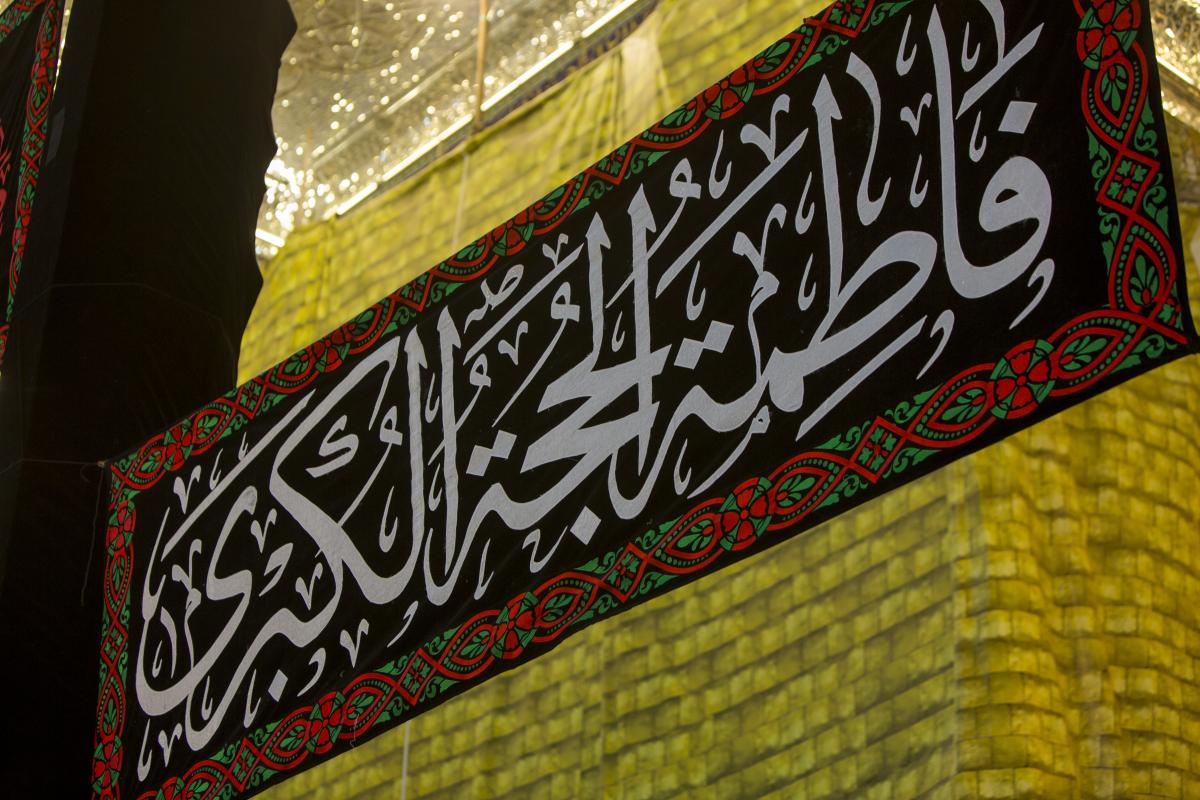 فاطمة الحجة الكبرى